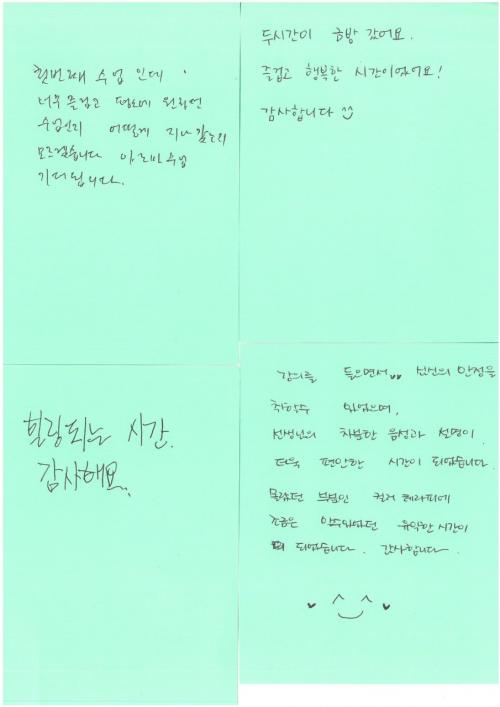 첫번째 수업 인데
너무 즐겁고 평소에 원하던
수업인지 어떻게 지나갈는지
모르겠습니다 아로마수업
기다립니다.
두시간이 금방 갔어요.
즐겁고 행복한 시간이었어요!
감사합니다 ^^
힐링되는 시간.
감사해요.
강의를 들으면서 심신의 안정을
취할수 있었으며,
선생님의 차분한 음성과 설명이
더욱 편안한 시간이 되었습니다.
몰랐던 부분인 컬러 테라피에
조금은 알수있었던 유익한 시간이
되었습니다. 감사합니다.